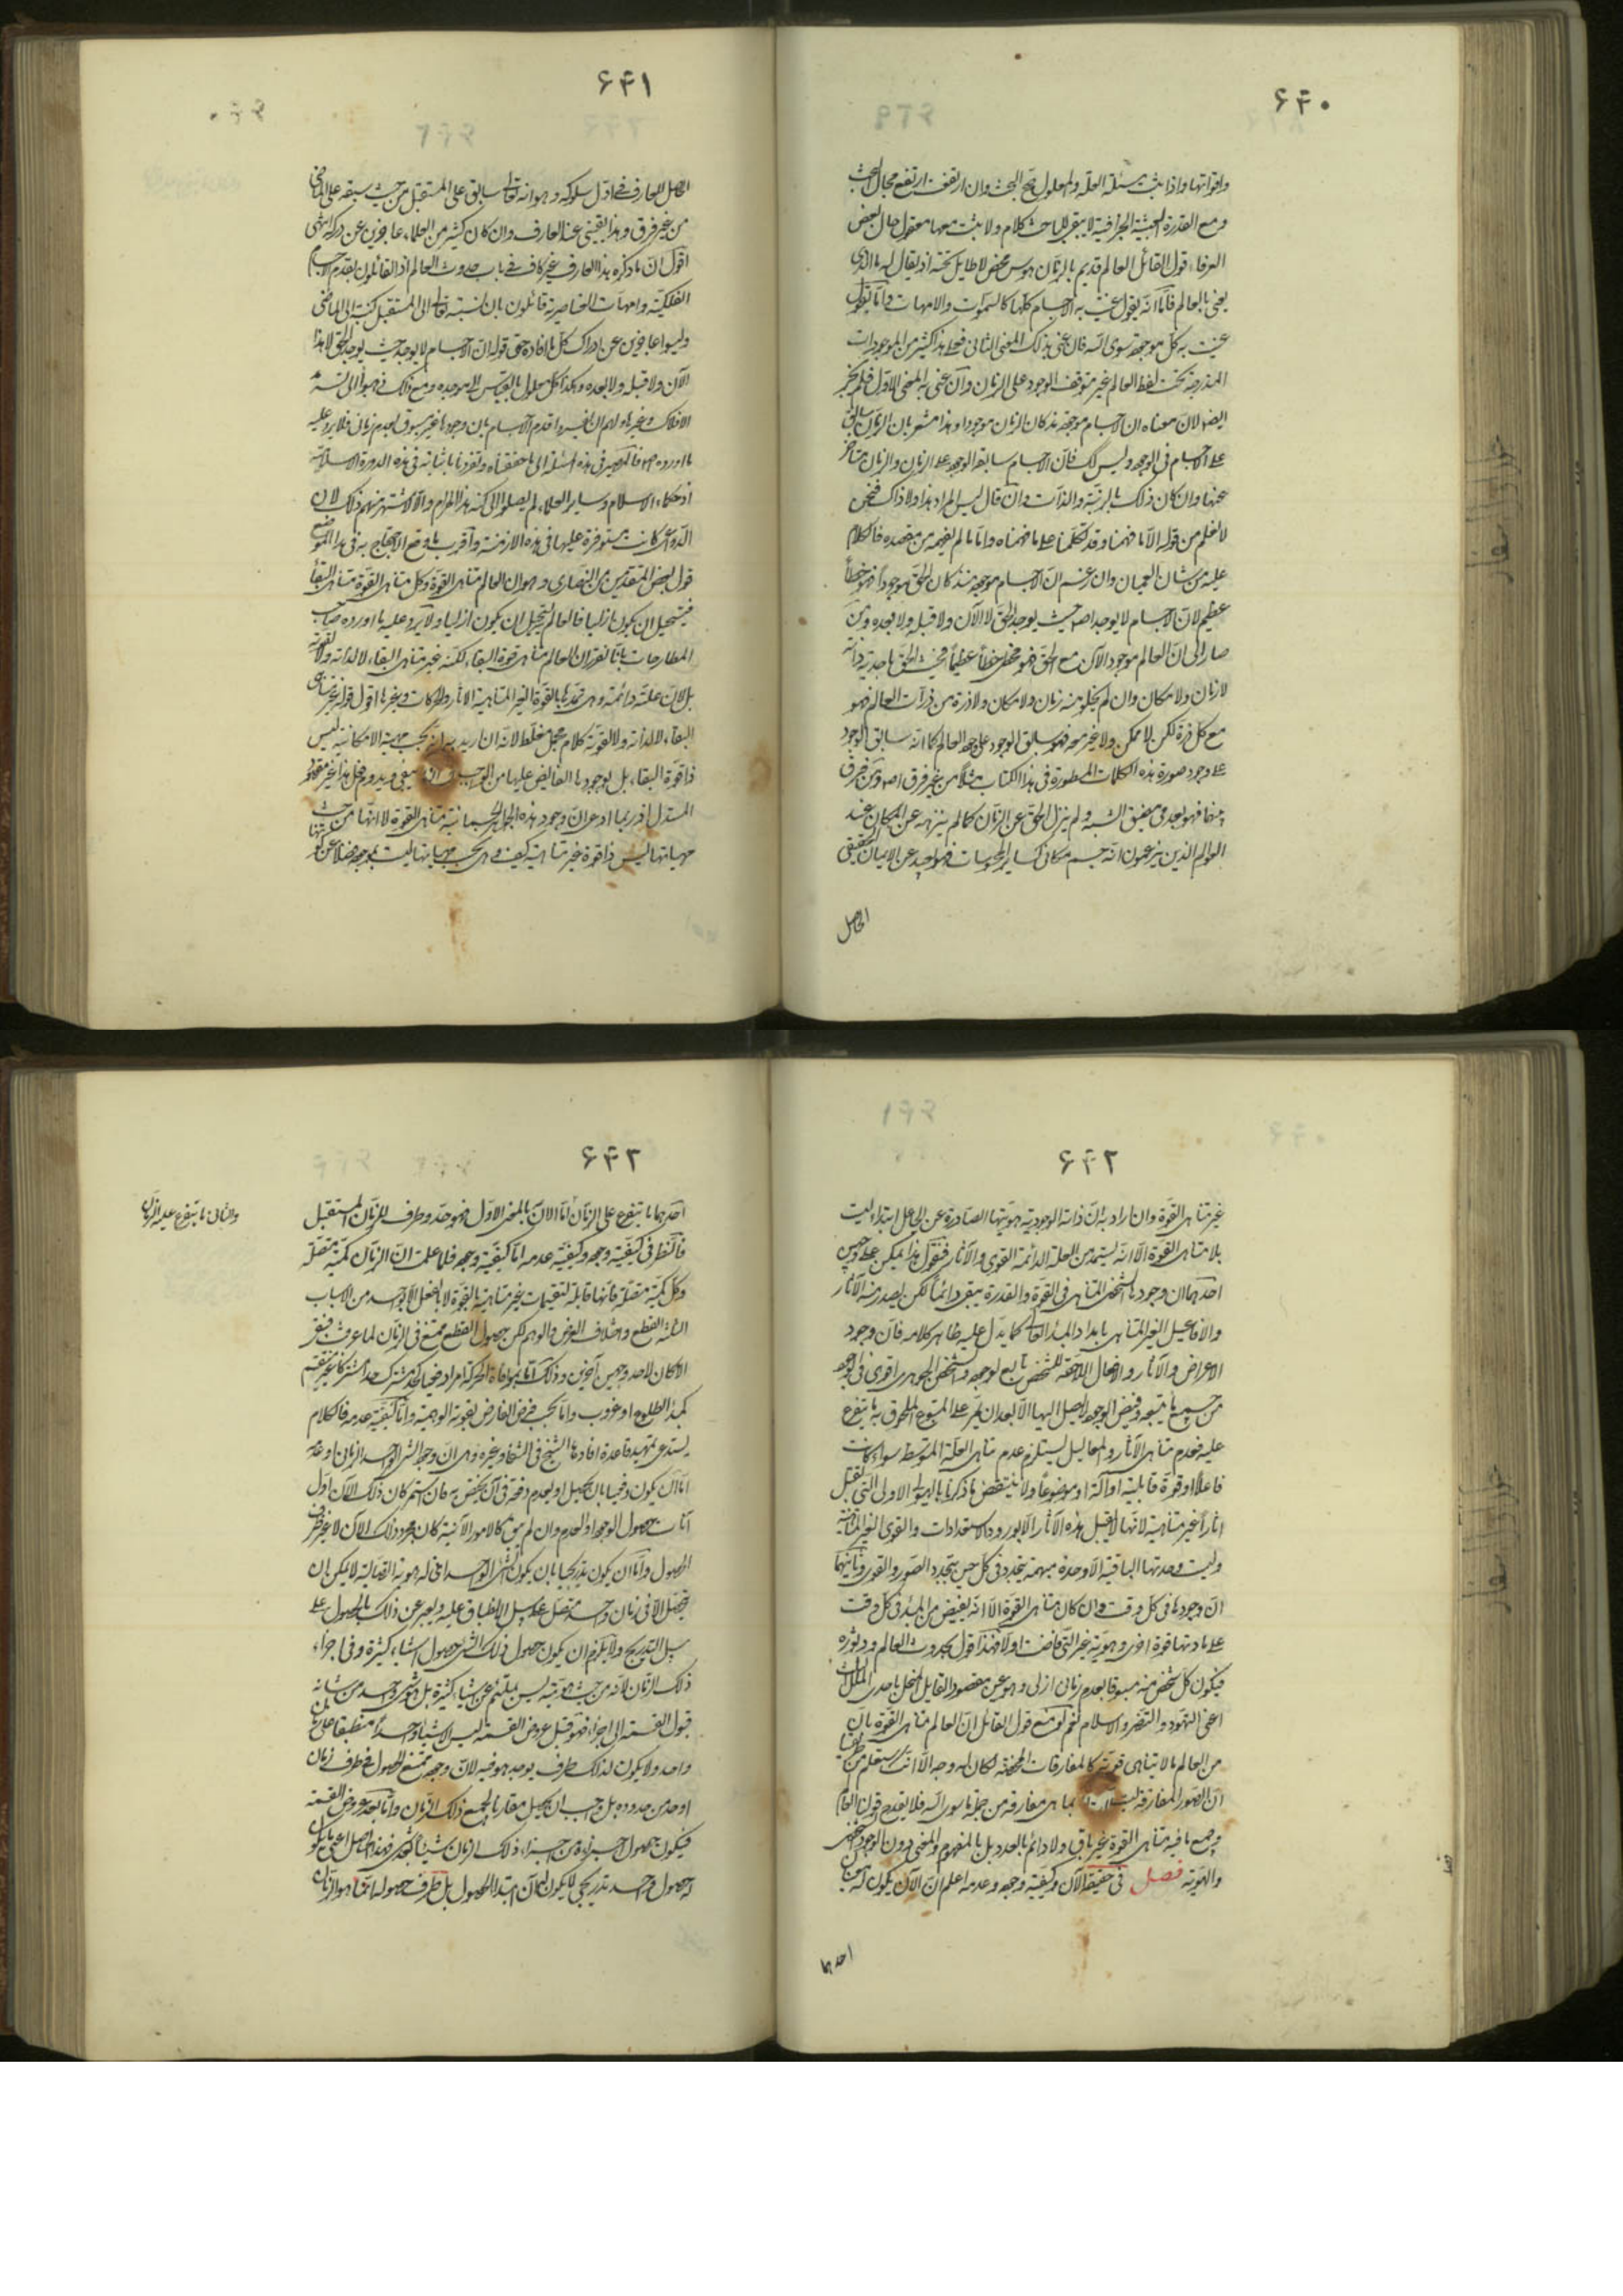 ۶۴۰
واقرانها واذا ثبت مسئلة العلة والمعلول صح البحث وان ارتفعت ارتفع مجال البحث
ومع القدرة الجزافية لا يبقى للباحث كلام ولا يثبت معها معقول قال بعض
العرفاء قول القائل العالم قديم بالزمان هوس محض لا طايل تحته اذ يقال له ما الذي
يعني بالعالم فاما انه يقول عنيت به الاجسام كلها كالسموات والامهات واما يقول
عنيت به كل موجود سوى الله فان عنى بذلك المعنى الثاني فعلى هذا كثير من الموجودات
المندرجة تحت لفظ العالم غير متوقف الوجود على الزمان وان عنى به المعنى الاول فلم يجز
ايضا لان معناه ان الاجسام موجودة مذ كان الزمان موجودا وهذا مشعر بان الزمان سابق
على الاجسام في الوجود وليس كذلك فان الاجسام سابقة الوجود على الزمان والزمان متاخر
عنها وان كان ذلك بالرتبة والذات وان قال ليس المراد هذا ولا ذاك فنحن
لا نعلم من قوله الا ما فهمنا وقد تكلمنا على ما فهمناه واما ما لم نفهمه من مقصده فالكلام
عليه من شان العميان وان زعم ان الاجسام موجودة منذ كان الحق موجودا فهو خطأ
عظيم لان الاجسام لا يوجد اصلا حيث يوجد الحق لا الآن ولا قبله ولا بعده ومن
صار الى ان العالم موجود الآن مع الحق فهو مخطئ خطأ عظيما فحيث الحق باحدية ذاته
لا زمان ولا مكان وان لم يخل منه زمان ولا مكان ولا ذرة من ذرات العالم فهو
مع كل ذرة لكن لا ممكن ولا غير معه فهو سابق الوجود على وجود العالم كما انه سابق الوجود
على وجود صورة هذه الكلمات المسطورة في هذا الكتاب مثلا من غير فرق اصلا ومن فرق
بينهما فهو بعد في مضيق الشبه ولم ينزل الحق عن الزمان كما لم ينزهه عن المكان عند
العوام الذين يزعمون انه جسم مكاني كساير المجسمات فهو بعيد عن الايمان الحقيقي
الحاصل
۶۴۱
الحاصل للعارف في اول سلوكه وهو انه تعالى سابق على المستقبل من حيث سبقه على الماضي
من غير فرق وهذا يقيني عند العارف وان كان كثير من العلماء عاجزين عن دركه انتهى
اقول ان ما ذكره هذا العارف غير كاف في باب حدوث العالم اذ القائلون بقدم الاجسام
الفلكية وامهات العناصر قائلون بان نسبته تعالى الى المستقبل كنسبته الى الماضي
وليسوا عاجزين عن ادراك كل ما افاده حتى قوله ان الاجسام لا يوجد حيث يوجد الحق لا هذا
الآن ولا قبله ولا بعده وهكذا كل معلول بالقياس الى موجده ومع ذلك ذهبوا الى تسرمد
الافلاك وغيرها
ما اورده
اذ حكماء الاسلام وساير العلماء لم يصلوا الى كنه هذا المرام والا لاشتهر منهم ذلك لان
الدواعي كانت متوفرة عليها في هذه الازمنة واقرب ما وقع الاحتجاج به في هذا الموضع
قول بعض المتقدمين من النصارى وهو ان العالم متناهي القوة وكل متناهي القوة متناهي البقاء
فيستحيل ان يكون ازليا فالعالم يستحيل ان يكون ازليا ولا يرد عليه ما اورده صاحب
المطارحات بانا نقول ان العالم متناهي قوة البقاء لكنه غير متناهي البقاء لا لذاته ولا لقوته
بل لان علته دائمة وهي تمدها بالقوة الغير المتناهية الآثار والحركات وغيرها اقول قوله غير متناهي
البقاء لا لذاته ولا لقوته كلام مجمل مغلط لانه ان اريد به انه بحسب مهيته الامكانية ليس
ذا قوة البقاء بل بوجودها الفايض عليها من الواجب يبقى ويدوم فمثل هذا غير مقصود
المستدل اذ ربما ادعى ان وجود هذه الجواهر الجسمانية متناهي القوة لا انها من حيث
مهياتها ليس ذا قوة غير متناهية كيف وهي بحسب مهياتها ليست بموجودة فضلا عن كونها
۶۴۲
غير متناهي القوة وان اراد به ان ذاته الوجودية وهويتها الصادرة عن الجاعل ابتداء ليست
بلا متناهي القوة الا انه يستمد من العلة الدائمة القوى والآثار فنقول هذا يمكن على وجهين
احدهما ان وجودها الشخصي المتناهي في القوة والقدرة يبقى دائما لكن يصدر منه الآثار
والافاعيل الغير المتناهي بامداد المبدأ العالي كما يدل عليه ظاهر كلامه فان وجود
الاعراض والآثار والافعال اللاحقة للشخص تابع لوجوده والشخص الجوهري اقوى في الوجود
من جميع ما يتبعه وفيض الوجود لا يصل اليها الا بعد ان يمر على المتبوع الملحوق به ما يتفرع
عليه فعدم تناهي الآثار والمعاليل يستلزم عدم تناهي العلة المتوسطة سواء كانت
فاعلا او قوة قابلية او آلة او موضوعا ولا ينتقض ما ذكرنا بالهيولى الاولى التي تقبل
آثارا غير متناهية لانها لا تقبل هذه الآثار الا بورود الاستعدادات والقوى الغير المتناهية
وليست وحدتها الباقية الا وحدة مبهمة يتجدد في كل حين بتجدد الصور والقوى وثانيهما
ان وجودها في كل وقت وان كان متناهي القوة الا انه يفيض من المبدأ في كل وقت
على مادتها قوة اخرى وهوية غير التي فاضت اولا فهذا قول بحدوث العالم ودثوره
فيكون كل شخص منه مسبوقا بعدم زماني ازلي وهو عين مقصود القايل المنتحل باحدى الملل الثلث
اعني التهود والتنصر والاسلام نعم لو منع قول القائل ان العالم متناهي القوة بان
من العالم ما لا يتناهى قوته كالمفارقات المحضة لكان له وجه الا انك ستعلم من طريقنا
ان الصور المفارقة ليست بما هي مفارقة من جملة ما سوى الله فلا يقدح قولنا العالم
وجميع ما فيه متناهي القوة غير باق ولا دائم بالعدد بل بالمفهوم والمعنى دون الوجود الشخصي
والهوية فصل في حقيقة الآن وكيفية وجوده وعدمه اعلم ان الآن يكون له معنيان
احدهما
۶۴۳
احدهما ما يتفرع على الزمان اما الآن بالمعنى الاول فهو حد وطرف للزمان المستقبل
والثاني ما يتفرع عليه الزمان
فالنظر في كيفية وجوده وكيفية عدمه اما كيفية وجوده فلما علمت ان الزمان كمية متصلة
وكل كمية متصلة فانها قابلة لتقسيمات غير متناهية بالقوة لا بالفعل الا بواحد من الاسباب
الثلثة القطع واختلاف العرض والوهم لكن حصول القطع ممتنع في الزمان لما عرفت فبقى
الامكان لاحد وجهين آخرين وذلك اما بموافاة الحركة امرا دفعيا كحد مشترك حدا مشتركا غير منقسم
كمبدا الطلوع او غروب واما بحسب فرض الفارض بقوته الوهمية واما كيفية عدمه فالكلام
يستدعي تمهيد قاعدة افادها الشيخ في الشفا وغيره وهي ان وجود الشيء الواحد الزماني او عدمه
اما ان يكون دفعيا بان يحصل او يعدم دفعة في آن يختص به فان استمر كان ذلك الآن اول
آنات حصول الوجود او العدم وان لم يبق كالامور الآنية كان مجرد ذلك الآن لا غير ظرف
الحصول واما ان يكون تدريجيا بان يكون الشيء الواحد اعني له هوية اتصالية لا يمكن ان
يتحصل الا في زمان واحد متصل على سبيل الانطباق عليه ويعبر عن ذلك بالحصول على
سبيل التدريج ولا يلزم ان يكون حصول ذلك الشيء حصول اشياء كثيرة في اجزاء
ذلك الزمان لانه من حيث هويته ليس بملتئم عن اشياء كثيرة بل هو شيء واحد من شانه
قبول القسمة الى اجزاء فهو قبل عروض القسمة ليس الا شيئا واحدا منطبقا على زمان
واحد ولا يكون لذلك طرف يوجد هو فيه لان وجوده ممتنع الحصول في طرف زمان
او حد من حدوده بل وجب ان يحصل مقارنا لجميع ذلك الزمان واما بعد عروض القسمة
فيكون حصول اجزائه في اجزاء ذلك الزمان شيئا بعد شيء فهذا الحاصل اعني ما يكون
له حصول واحد تدريجي لا يكون له آن ابتداء الحصول بل ظرف حصوله انما هو الزمان